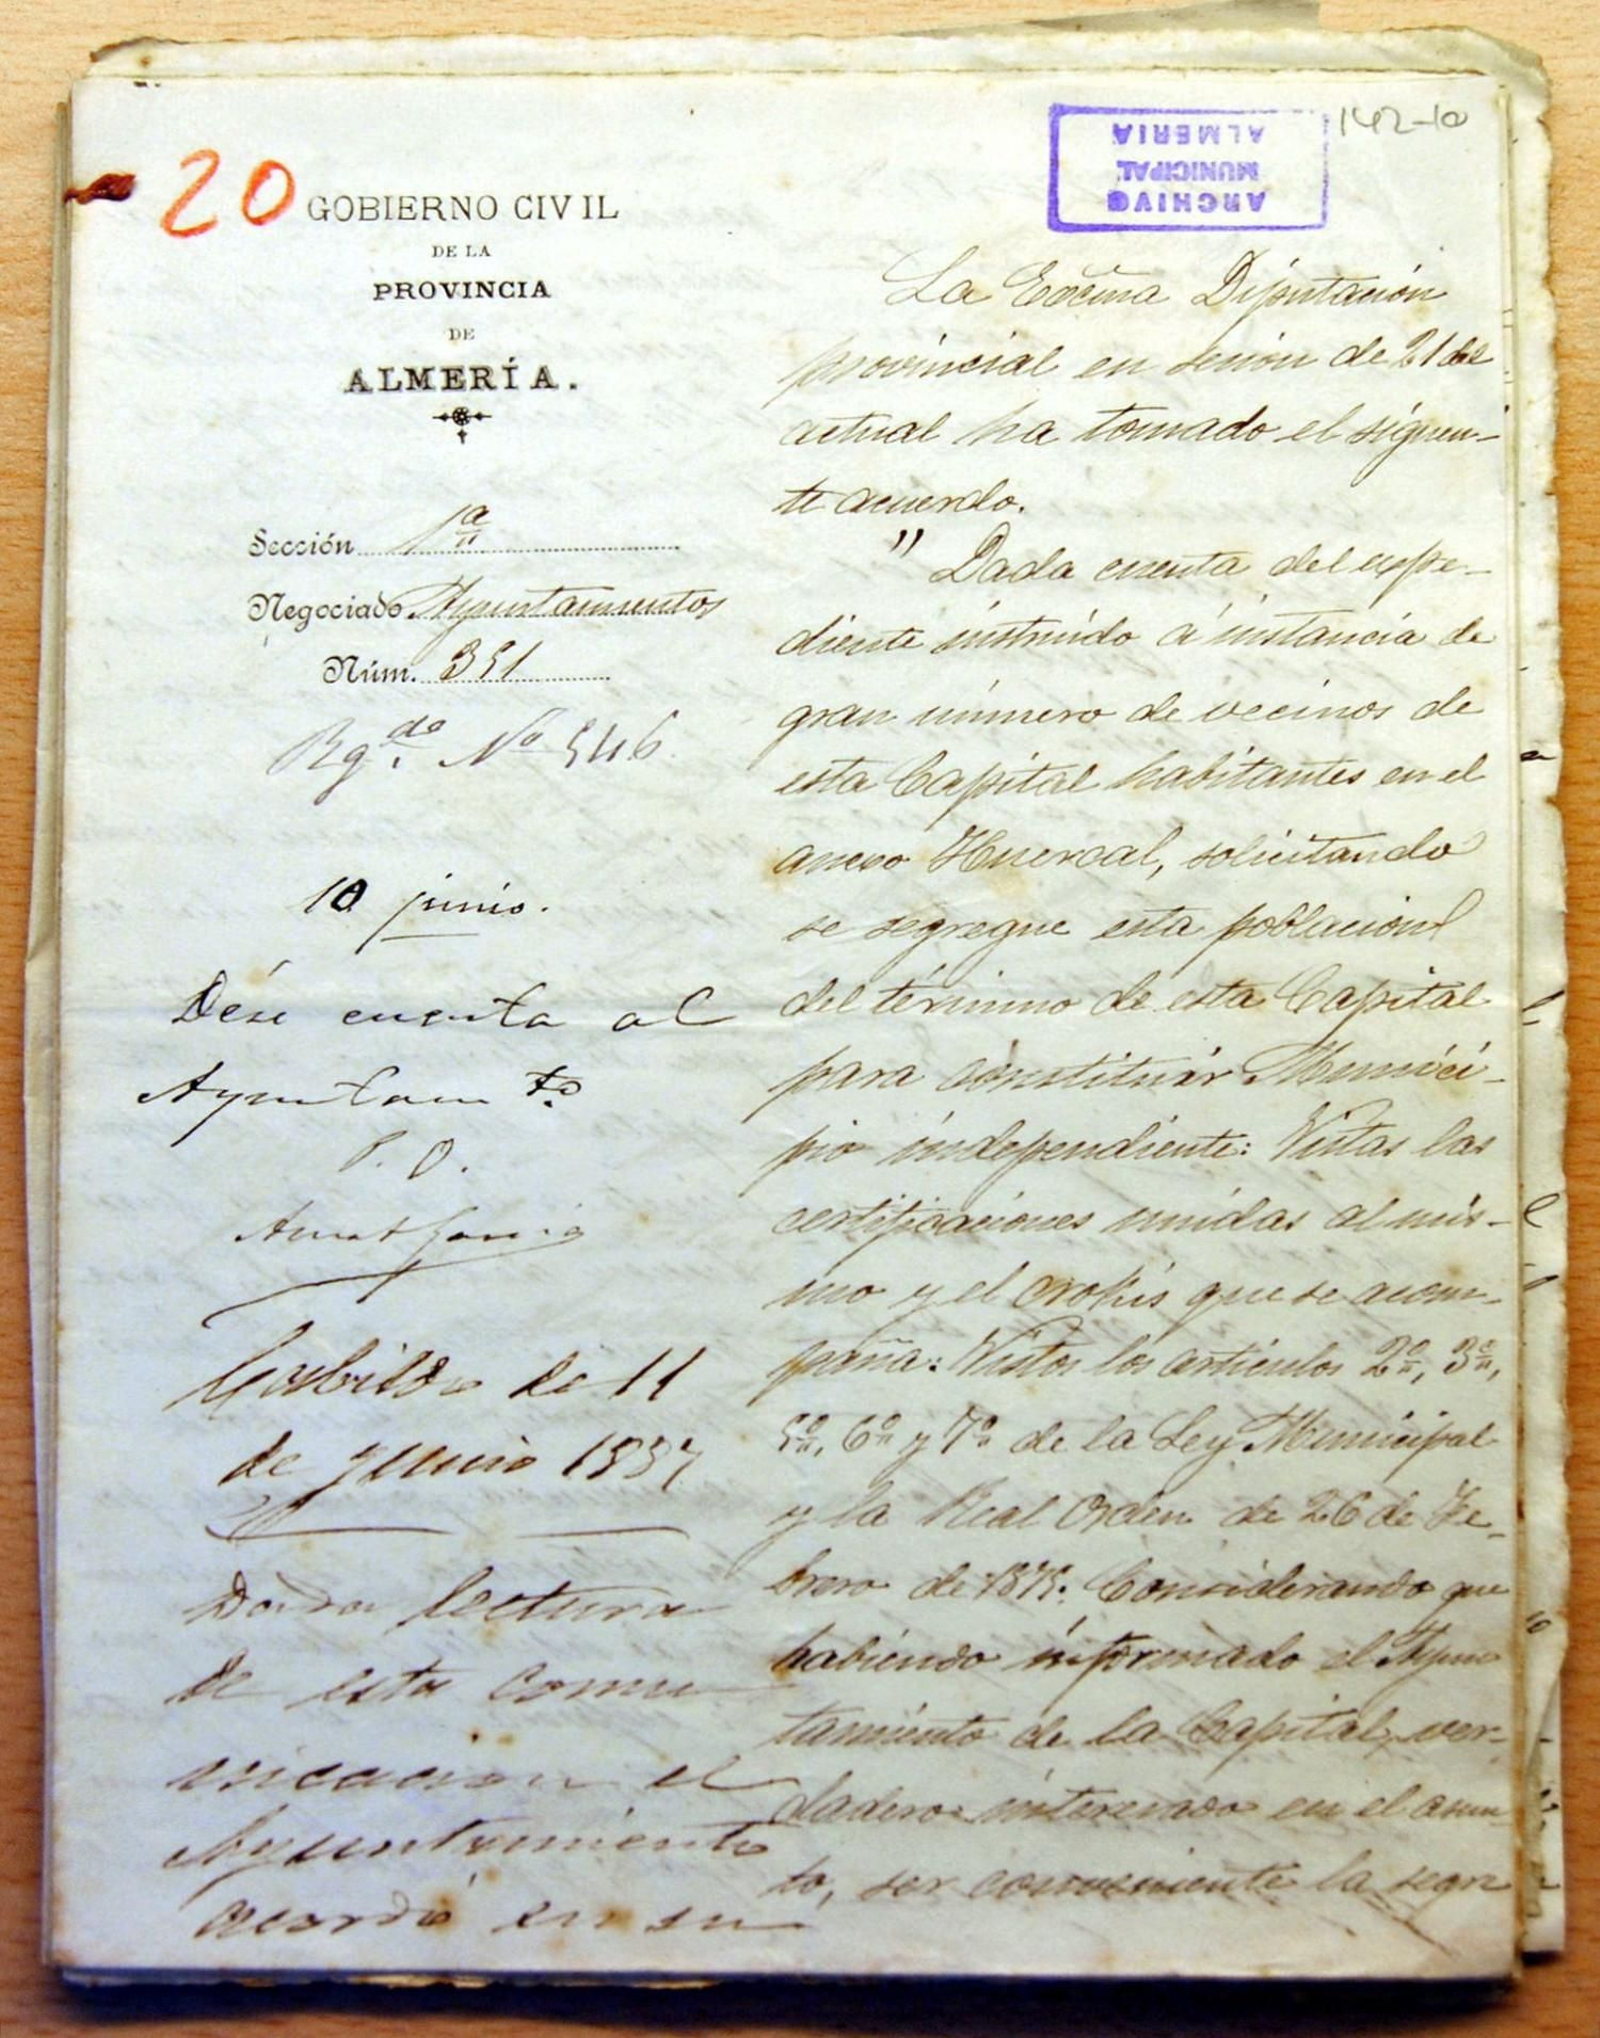 20
GOBIERNO CIVIL
DE LA
PROVINCIA
DE
ALMERÍA.
Sección 1ª
Negociado Ayuntamientos
Núm. 351
Rgdo. Nº 546
10 junio.
Dése cuenta al
Ayuntamto.
P. O.
Cabildo de 11
de junio 1887
Dada lectura
de esta comu
nicacion el
Ayuntamiento
acordó en su
142-10
ARCHIVO
MUNICIPAL
ALMERIA
La Excma Diputación
provincial en sesion de 21 del
actual ha tomado el siguien-
te acuerdo.
" Dada cuenta del expe-
diente instruido á instancia de
gran número de vecinos de
esta Capital habitantes en el
anexo Huercal, solicitando
se segregue esta poblacion
del término de esta Capital
para constituir Munici-
pio independiente: Vistas las
certificaciones unidas al mis-
mo y el crokis que se acom-
paña: Vistos los articulos 2º, 3º,
5º, 6º y 7º de la Ley Municipal
y la Real Orden de 26 de Fe-
brero de 1875: Considerando que
habiendo informado el Ayun
tamiento de la Capital, ver-
dadero interesado en el asun-
to, ser conveniente la segre